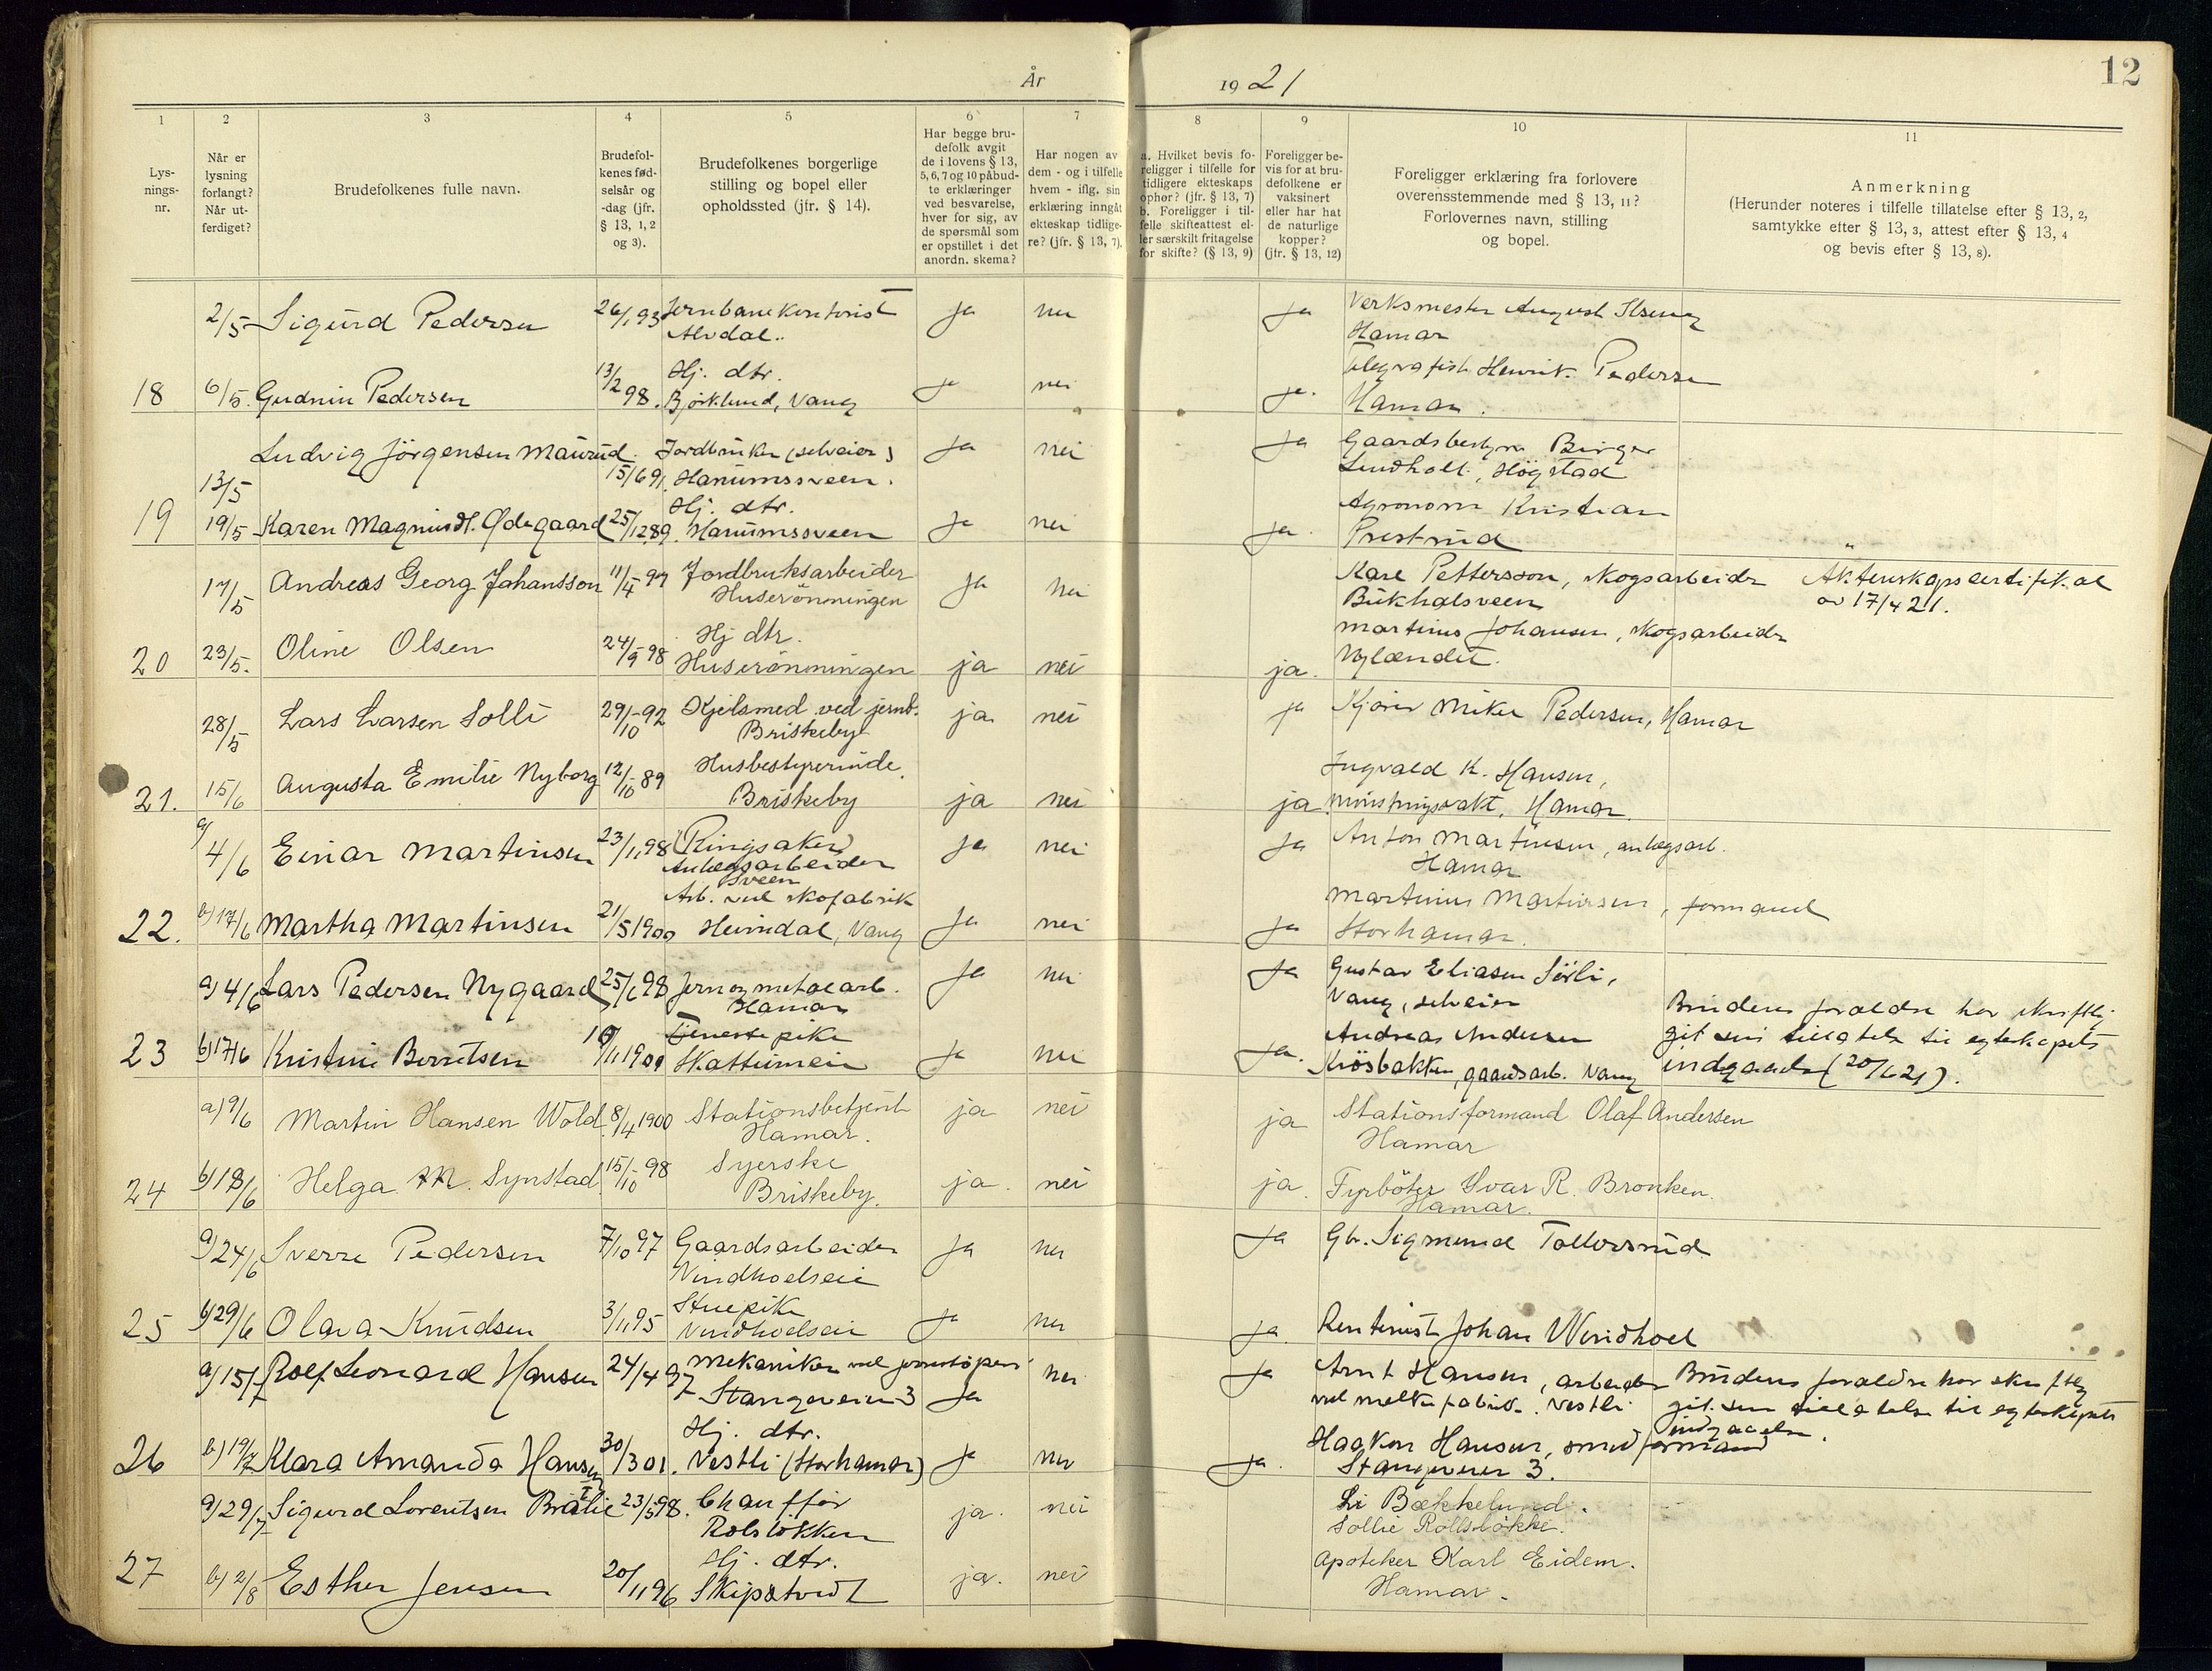 År 1921
12
1 2 3 4 5 6 7 8 9 10 11
Lys-
nings-
nr.
Når er
lysning
forlangt?
Når ut-
ferdiget?
Brudefolkenes fulle navn.
Brudefol-
kenes fød-
selsår og
-dag (jfr.
§ 13, 1, 2
og 3).
Brudefolkenes borgerlige
stilling og bopel eller
opholdssted (jfr. § 14).
Har begge bru-
defolk avgit
de i lovens § 13,
5, 6, 7 og 10 påbud-
te erklæringer
ved besvarelse,
hver for sig, av
de spørsmål som
er opstillet i det
anordn. skema?
Har nogen av
dem - og i tilfelle
hvem - iflg. sin
erklæring inngåt
ekteskap tidlige-
re? (jfr. § 13, 7).
a. Hvilket bevis fo-
religger i tilfelle for
tidligere ekteskaps
ophør? (jfr. § 13, 7)
b. Foreligger i til-
felle skifteattest el-
ler særskilt fritagelse
for skifte? (§ 13, 9)
Foreligger be-
vis for at bru-
defolkene er
vaksinert
eller har hat
de naturlige
kopper?
(jfr. § 13, 12)
Foreligger erklæring fra forlovere
overensstemmende med § 13, 11?
Forlovernes navn, stilling
og bopel.
Anmerkning
(Herunder noteres i tilfelle tillatelse efter § 13, 2,
samtykke efter § 13, 3, attest efter § 13, 4
og bevis efter § 13, 8).
2/5 Sigurd Pedersen 26/1 93 Jernbanekontorist ja nei ja Verksmester August
Alvdal. Hamar
18 6/5. Gudrun Pedersen 13/2 98. Hj. dtr. ja nei ja. Telegrafist Henrik Pedersen
Bjørklund, Vang Hamar.
13/5 Ludvig Jörgensen Maurud. 15/6 91. Jordbruker (selveier) ja nei ja Gaardsbestyrer Birger
Hanumssveen. Lindholt, Högstad
19 19/5 Karen Magnusdt. Ødegaard 25/12 89. Hj. dtr. ja nei ja. Agronom Kristian
Hanumssveen Prestrud
17/5 Andreas Georg Johansson 11/4 97 Jordbruksarbeider ja nei Karl Pettersson, skogsarbeider Äktenskapscertifikat
Huserönningen Bukhalsveen av 17/4 21.
20 23/5. Oline Olsen 24/9 98 Hj dtr. Martinus Johansen, skogsarbeider
Huserönningen ja nei ja. Nylændet.
28/5 Lars Larsen Solli 29/10-92 Kjelsmed ved jernb. ja nei ja Kjörer Mikal Pedersen, Hamar
Briskeby
21. 15/6 Augusta Emilie Nyborg 12/10-89 Husbestyrerinde. Ingvald K. Hansen,
Briskeby ja nei ja. Hamar.
a) 4/6 Einar Martinsen 23/1 98 (Ringsaker) ja nei ja Anton Martinsen, anlægsarb.
Anlægsarbeider Hamar
Sveen
22. b) 17/6 Martha Martinsen 21/5 1900 Arb. ved skofabrik Martinus Martinsen, formand
Heimdal, Vang ja nei ja Storhamar.
a) 4/6 Lars Pedersen Nygaard 25/6 98 Jern og metalarb. ja nei ja Gustav Eliasen Sörli,
Hamar Vang, selveier Brudens forældre har skriftl.
23 b) 17/6 Kristine Berntsen 10/11 1901 Tjenestepike ja nei ja. Andreas Andersen git sin tillatelse til egteskapets
Skattumeie Kiösbakken, gaardsarb. Vang indgaaelse (20/6 21).
a) 9/6 Martin Hansen Wold. 8/4 1900 Stationsbetjent ja nei ja Stationsformand Olaf Andersen
Hamar. Hamar
24 b) 18/6 Helga M. Synstad 15/10-98 Syerske
Briskeby. ja. nei ja. Fyrböter Ivar R. Bronken.
Hamar.
a) 24/6 Sverre Pedersen 7/10 97 Gaardsarbeider ja nei ja Gbr. Sigmund Tollersrud.
Vindhoelseie
25 b) 29/6 Olava Knudsen 3/1 95 Stuepike
Vindhoelseie ja nei ja. Rentenist Johan Windhoel
a) 15/7 Rolf Leonard Hansen 24/4 97 Mekaniker ved jernstöperi nei ja Arnt Hansen, arbeider Brudens forældre har skriftlig
Stangeveien 3 ja ved melkefabrik. Vestli git sin tillatelse til egteskapets
indgaaelse.
26 b) 19/7 Klara Amanda Hansen 30/3 01. Hj. dtr. Haakon Hansen, smedformand
Vestli (Storhamar) ja nei ja. Stangeveien 3.
a) 29/7 Sigurd Lorentsen Brålie 23/5 98. Chauffør ja. nei Li Bækkelund.
Rolsløkken Sollie Rollsløkke.
27 b) 2/8 Esther Jensen 20/11 96 Hj. dtr. ja. nei Apoteker Karl Eidem.
Skipstvedt Hamar.